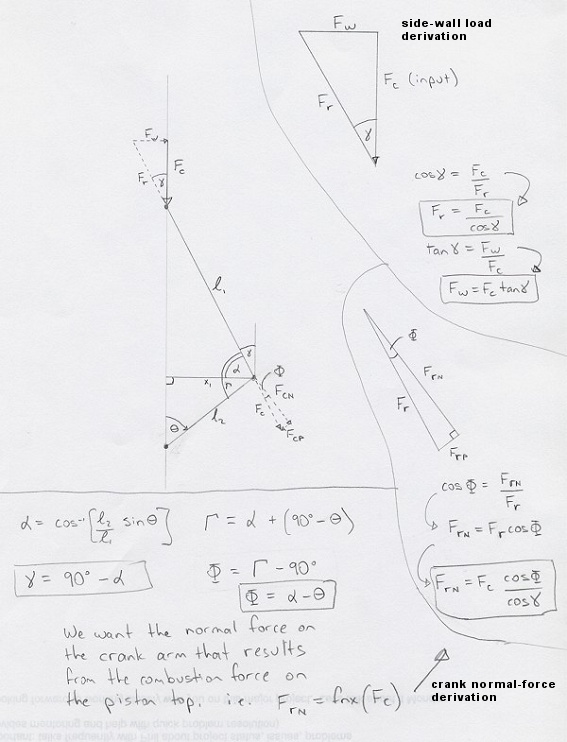 side-wall load
derivation
F_w
F_c (input)
F_r
γ
F_w
F_r
γ
F_c
cosγ = F_c/F_r
F_r = F_c/cosγ
tanγ = F_w/F_c
F_w = F_c tanγ
l_1
γ
α
Γ
x_1
θ
l_2
Φ
F_CN
F_c
F_CP
Φ
F_rN
F_r
F_rP
cosΦ = F_rN/F_r
F_rN = F_r cosΦ
F_rN = F_c cosΦ/cosγ
α = cos⁻¹[l_2/l_1 sinθ]
Γ = α + (90° - θ)
γ = 90° - α
Φ = Γ - 90°
Φ = α - θ
We want the normal force on
the crank arm that results
from the combustion force on
the piston top. i.e. F_rN = fnx(F_c)
crank normal-force
derivation